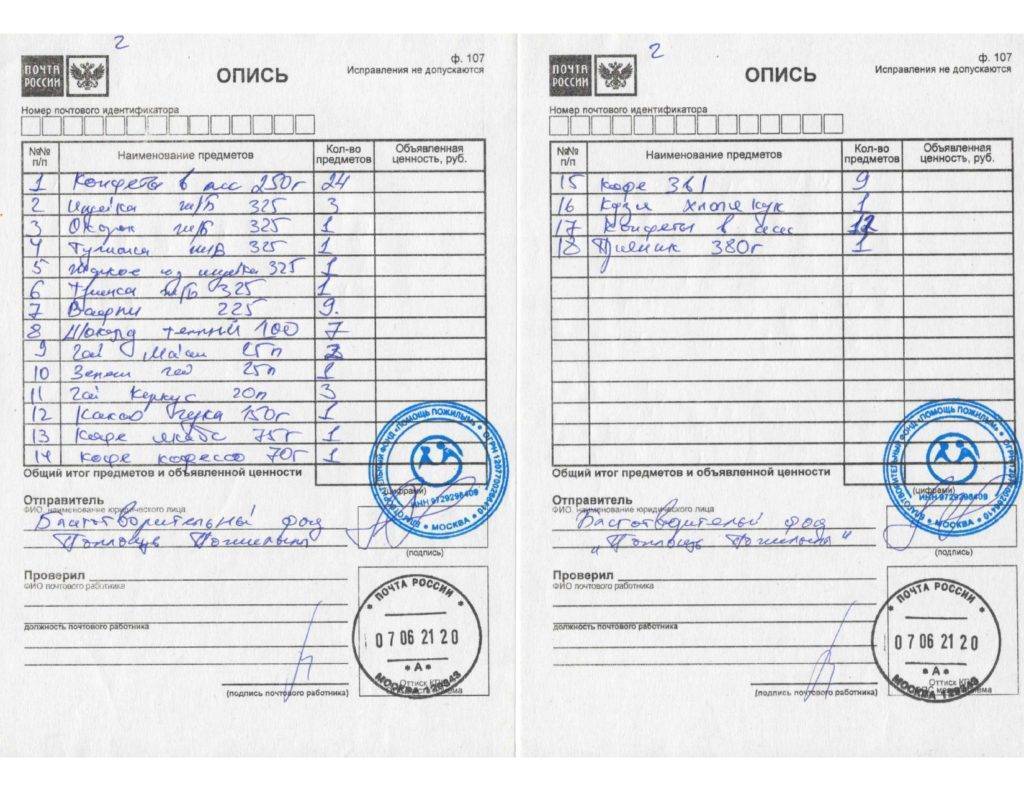 2
ПОЧТА РОССИИ
ОПИСЬ
ф. 107
Исправления не допускаются
Номер почтового идентификатора
№№ п/п Наименование предметов Кол-во предметов Объявленная ценность, руб.
1 Конфеты в асс 250г 24
2 325 3
3 325 1
4 325 1
5 325 1
6 325 1
7 Вафли 225 9.
8 темный 100 7
9 Чай 25п
10 чай 25п 1
11 Чай 20п 3
12 Какао 150г 1
13 Кофе 75г 1
14 Кофе 70г 1
Общий итог предметов и объявленной ценности
(цифрами)
Отправитель
ФИО, наименование юридического лица
Благотворительный фонд
Помощь Пожилым
(подпись)
Проверил
ФИО почтового работника
должность почтового работника
(подпись почтового работника)
БЛАГОТВОРИТЕЛЬНЫЙ ФОНД «ПОМОЩЬ ПОЖИЛЫМ»
ИНН 9729298409
МОСКВА
ПОЧТА РОССИИ
07 06 21 20
А
МОСКВА 129343
2
ПОЧТА РОССИИ
ОПИСЬ
ф. 107
Исправления не допускаются
Номер почтового идентификатора
№№ п/п Наименование предметов Кол-во предметов Объявленная ценность, руб.
15 Кофе 3в1 9
16 1
17 Конфеты в
18 380г 1
Общий итог предметов и объявленной ценности
(цифрами)
Отправитель
ФИО, наименование юридического лица
Благотворительный фонд
"Помощь Пожилым"
(подпись)
Проверил
ФИО почтового работника
должность почтового работника
(подпись почтового работника)
БЛАГОТВОРИТЕЛЬНЫЙ ФОНД «ПОМОЩЬ ПОЖИЛЫМ»
ИНН 9729298409
МОСКВА
ПОЧТА РОССИИ
07 06 21 20
А
МОСКВА 129343